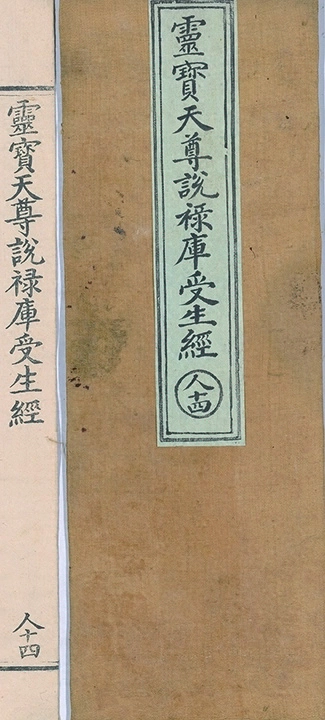 靈寶天尊說禄庫受生經
人十四
靈寶天尊說禄庫受生經
人十四